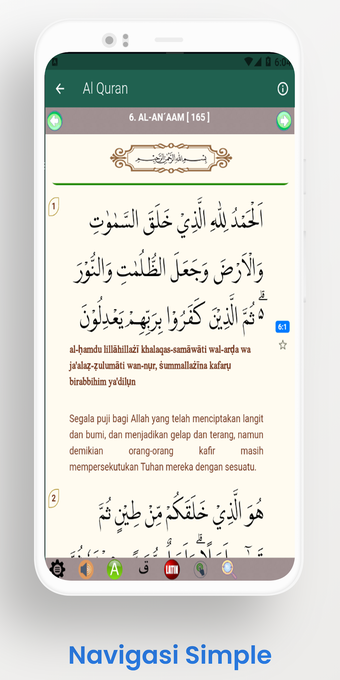 6:0
Al Quran
6. AL-AN´AAM [ 165 ]
بِسْمِ اللّٰهِ الرَّحْمٰنِ الرَّحِيْمِ
1
اَلْحَمْدُ لِلّٰهِ الَّذِيْ خَلَقَ السَّمٰوٰتِ
وَالْاَرْضَ وَجَعَلَ الظُّلُمٰتِ وَالنُّوْرَ
ەۗ ثُمَّ الَّذِيْنَ كَفَرُوْا بِرَبِّهِمْ يَعْدِلُوْنَ
6:1
al-ḥamdu lillāhillażī khalaqas-samāwāti wal-arḍa wa
ja'alaẓ-ẓulumāti wan-nụr, ṡummallażīna kafarụ
birabbihim ya'dilụn
Segala puji bagi Allah yang telah menciptakan langit
dan bumi, dan menjadikan gelap dan terang, namun
demikian orang-orang kafir masih
mempersekutukan Tuhan mereka dengan sesuatu.
2
هُوَ الَّذِيْ خَلَقَكُمْ مِّنْ طِيْنٍ ثُمَّ
A
ق
LATIN
Navigasi Simple